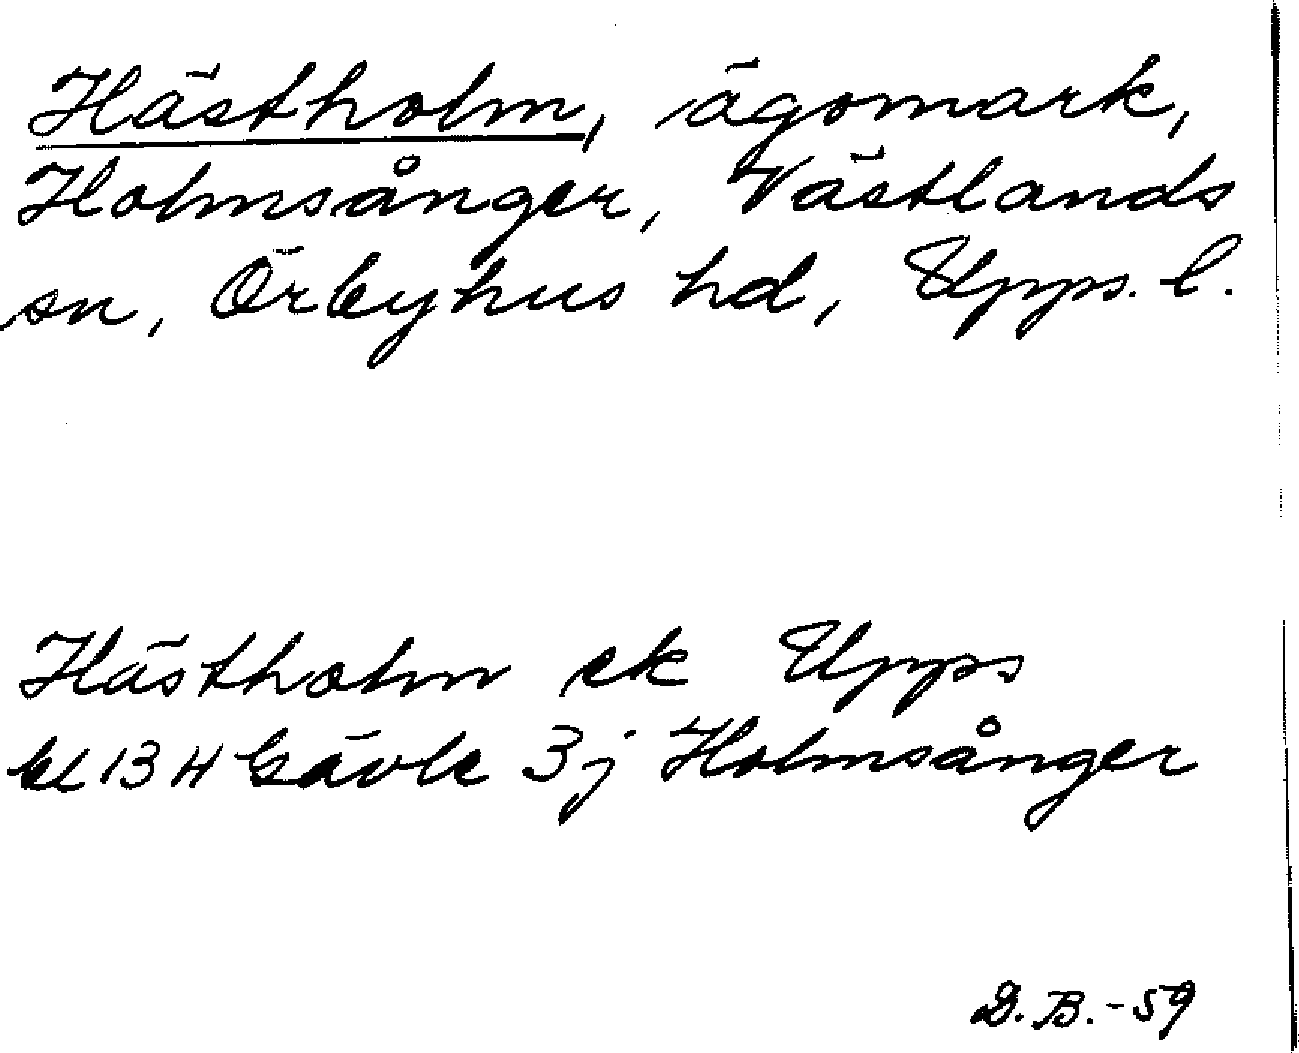 Hästholm, ägomark,
Holmsånger, Västlands
sn, Örbyhus hd, Upps. l.
Hästholm ek Upps
bl 13 H Gävle 3j Holmsånger
D. B. - 59